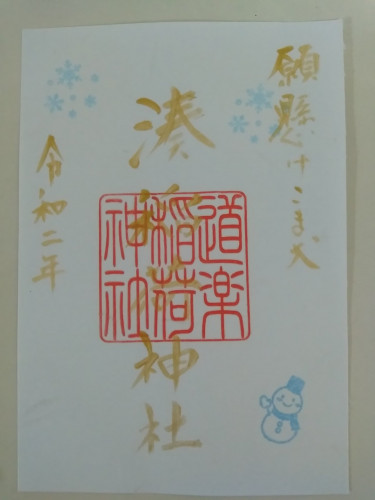 願懸けこま犬
湊稲荷神社
道楽
稲荷
神社
令和二年